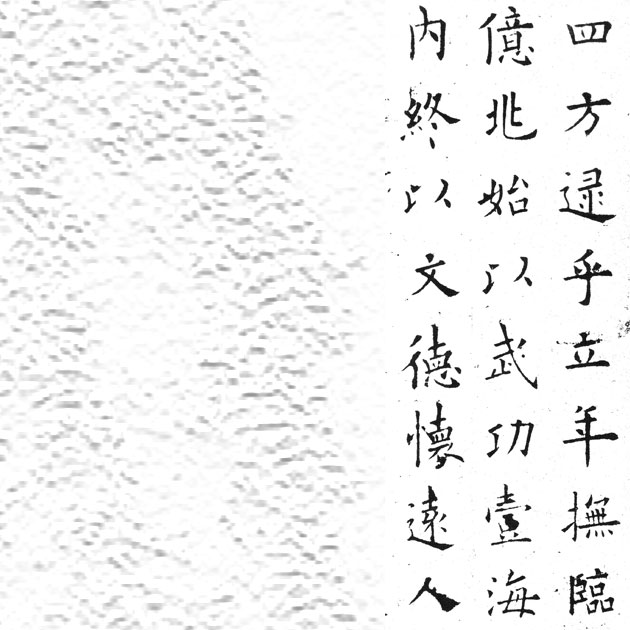 四方逯乎立年撫臨
億兆始以武功壹海
內終以文德懷遠人